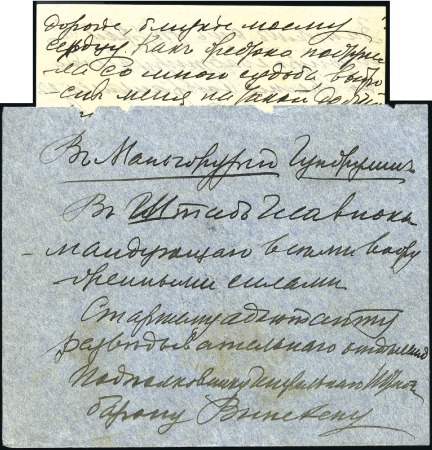 дорогое, близкое моему
сердцу. Какъ жестоко подшути-
ла со мной судьба, выбро-
сивъ меня на такой
Въ Маньчжурiю Гунжулинъ
Въ Штабъ Главноко-
мандующаго всеми воору-
женными силами
Старшему адъютанту
разведывательнаго отделенiя
Подполковнику Генеральнаго Штаба
барону Винекену